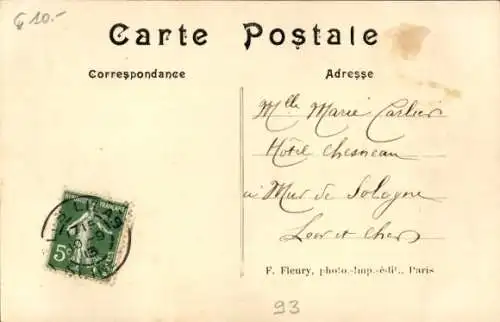 € 10.-
Carte Postale
Correspondance
Adresse
Mlle Marie Carlier
Hôtel Chesneau
à Mur de Sologne
Loir et Cher
5c
F. Fleury, photo.-Imp.-édit., Paris
93